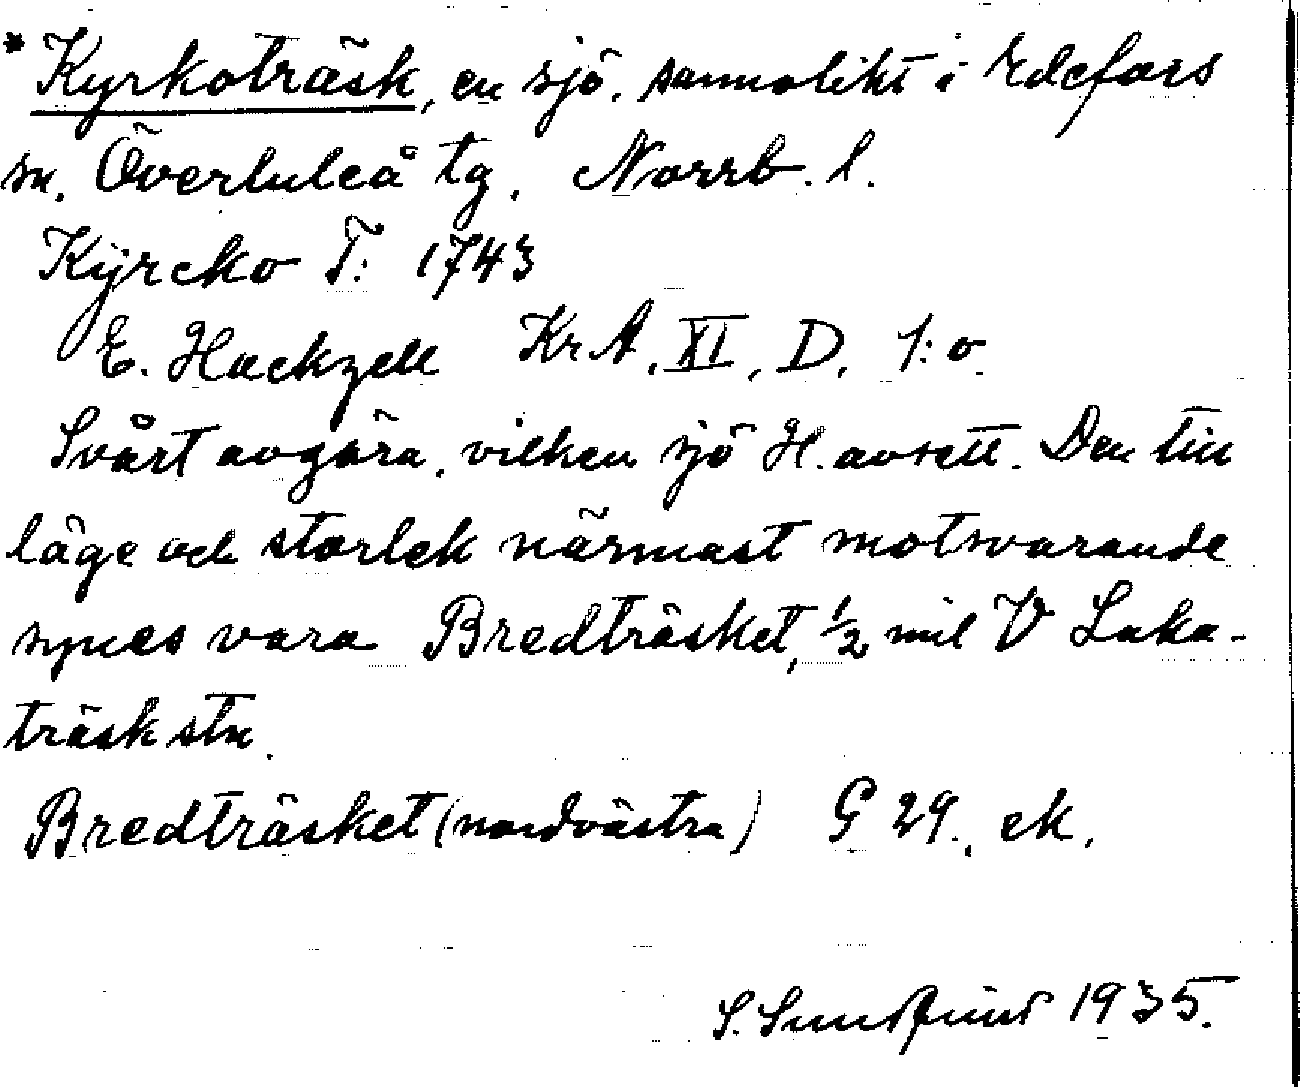 * Kyrkoträsk, en sjö, sannolikt i Edefors
sn, Överluleå tg, Norrb. l.
Kyrcko T: 1743
E. Hackzell KrA, XI, D, 1:o
Svårt avgöra, vilken sjö H. avsett. Den till
läge och storlek närmast motsvarande
synes vara Bredträsket, ½ mil V Laka-
träsk stn.
Bredträsket (nordvästra) G 29, ek.
S. Sundqvist 1935.